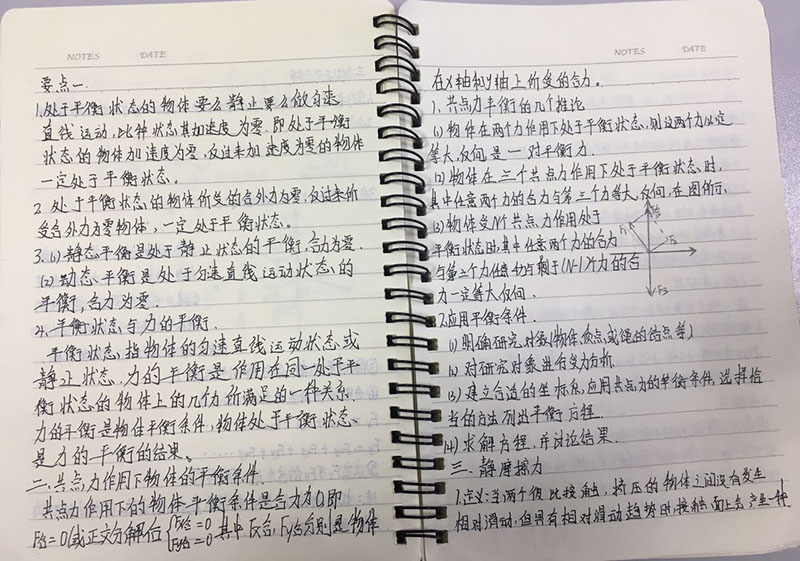 NOTES DATE
要点一.
1.处于平衡状态的物体要么静止要么做匀速
直线运动,此种状态其加速度为零.即处于平衡
状态的物体加速度为零,反过来加速度为零的物体
一定处于平衡状态.
2.处于平衡状态的物体所受的合外力为零,反过来所
受合外力为零物体,一定处于平衡状态.
3.(1)静态平衡是处于静止状态的平衡,合力为零.
(2)动态平衡是处于匀速直线运动状态的
平衡,合力为零.
4.平衡状态与力的平衡.
平衡状态指物体的匀速直线运动状态或
静止状态.力的平衡是作用在同一处于平
衡状态的物体上的几个力所满足的一种关系.
力的平衡是物体平衡条件,物体处于平衡状态
是力的平衡的结果。
二、共点力作用下物体的平衡条件
共点力作用下的物体平衡条件是合力为0,即
F合=0或正交分解后{Fx合=0 Fy合=0 其中Fx合,Fy合分别是物体
NOTES DATE
在x轴和y轴上所受的合力.
1.共点力平衡的几个推论
(1)物体在两个力作用下处于平衡状态,则这两个力必定
等大,反向,是一对平衡力.
(2)物体在三个共点力作用下处于平衡状态时,
其中任意两个力的合力与第三个力等大,反向,在图所示.
(3)物体受N个共点力作用处于
平衡状态时,其中任意两个力的合力
与第三个力 与剩于(N-1)个力的合
力一定等大反向.
F1
F2
F3
2.应用平衡条件.
(1)明确研究对象(物体,质点或绳的结点等)
(2)对研究对象进行受力分析
(3)建立合适的坐标系,应用共点力的平衡条件,选择恰
当的方法列出平衡方程.
(4)求解方程,并讨论结果.
三、静摩擦力
1.定义:当两个彼此接触,挤压的物体之间没有发生
相对滑动,但具有相对滑动趋势时,接触面上会产生一种